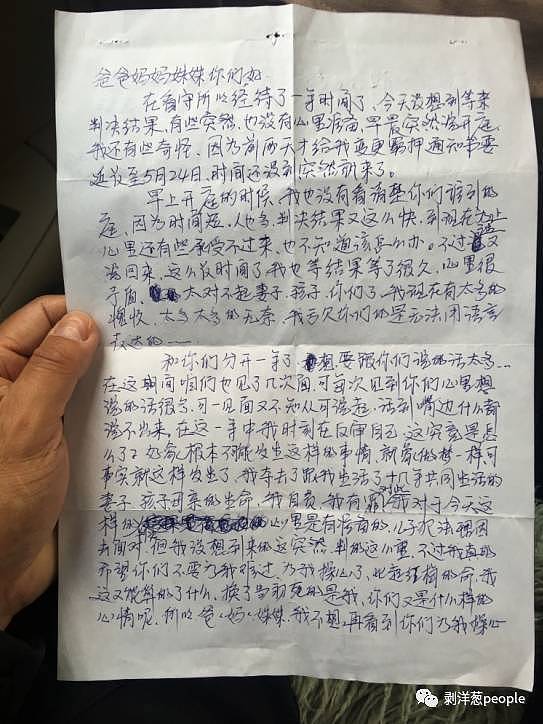 爸爸妈妈妹妹你们好
在看守所已经待了一年时间了，今天没想到等来
判决结果，有些突然，也没有心里准备，早晨突然说开庭
我还有些奇怪，因为前两天才给我变更羁押通知书要
延长至5月24日，时间还没到突然就来了。
早上开庭的时候，我也没有看清楚你们谁到的
庭，因为时间短，人也多，判决结果又这么快，到现在为止
心里还有些承受不过来，也不知道该怎么办。不过又
说回来，这么长时间了我也等结果等了很久，心里很
矛盾，太对不起妻子，孩子，你们了，我现在有太多的
悔恨，太多太多的无奈，我亏欠你们的是无法用语言
表达的……
和你们分开一年了 想要跟你们说的话太多…
在这期间咱们也见了几次面，可每次见到你们心里想
说的话很多，可一见面又不知从何说起，话到嘴边什么都
说不出来，在这一年中我时刻在反审自己，这究竟是怎
么了？如今根本不可能发生这样的事情，就像做梦一样可
事实就这样发生了，我夺去了跟我生活了十几年共同生活的
妻子，孩子母亲的生命，我自责，我有罪，我对于今天这
样的 心里是有准备的，儿子犯法理因
去面对，但我没想到来的这突然，判的这么重，不过我真的
希望你们不要为我难过，为我操心了，比起结梅的命，我
这又能算的了什么，换了当初死的是我，你们又是什么样的
心情呢，所以爸、妈、妹妹，我不想再看到你们为我操心
剥洋葱people